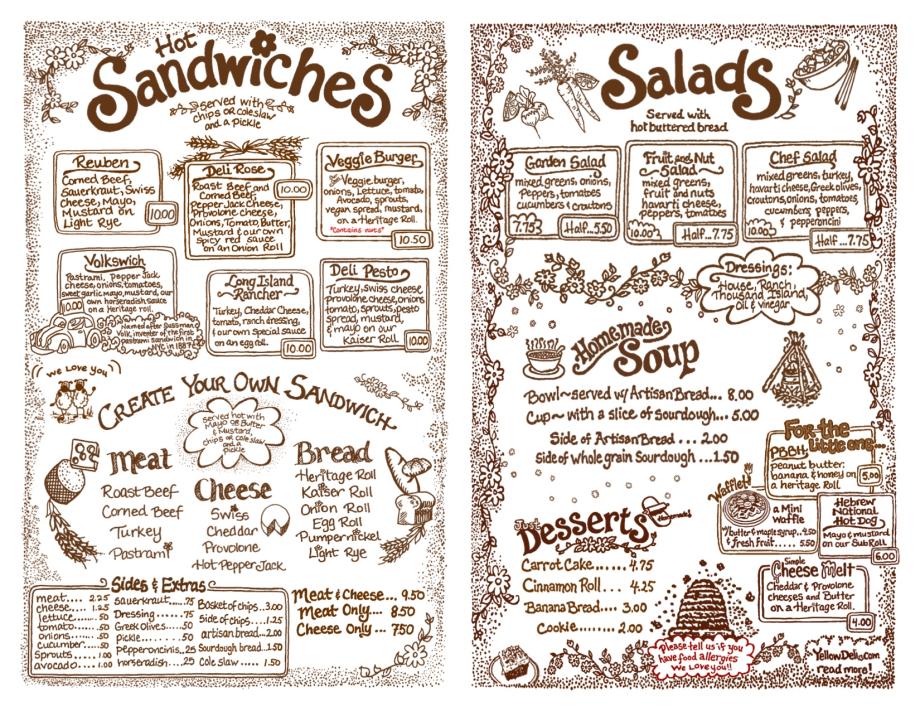 Hot
Sandwiches
served with
chips or coleslaw
and a pickle
Reuben
Corned Beef,
Sauerkraut, Swiss
cheese, Mayo,
Mustard on
Light Rye
10.00
Deli Rose
Roast Beef and
Corned Beef,
Pepper Jack Cheese,
Provolone cheese,
Onions, Tomato, Butter,
Mustard & our own
spicy red sauce
on an Onion Roll
10.00
Veggie Burger
Veggie burger,
onions, Lettuce, tomato,
Avocado, sprouts,
vegan spread, mustard,
on a Heritage Roll.
*Contains nuts*
10.50
Volkswich
Pastrami, Pepper Jack
cheese, onions, tomatoes,
sweet garlic mayo, mustard, our
own horseradish sauce
on a Heritage roll.
10.00
Named after Sussman
Volk, inventor of the first
pastrami sandwich in
NYC in 1887
Long Island
Rancher
Turkey, Cheddar Cheese,
tomato, ranch dressing,
& our own special sauce
on an egg roll.
10.00
Deli Pesto
Turkey, Swiss cheese
provolone cheese, onions
tomato, sprouts, pesto
spread, mustard,
& mayo on our
Kaiser Roll
10.00
We Love you
Create Your Own Sandwich
served hot with
Mayo or Butter
& Mustard,
chips or coleslaw
and a
pickle
Meat
Roast Beef
Corned Beef
Turkey
Pastrami
Cheese
Swiss
Cheddar
Provolone
Hot Pepper Jack
Bread
Heritage Roll
Kaiser Roll
Onion Roll
Egg Roll
Pumpernickel
Light Rye
Sides & Extras
meat.... 2.25
cheese.... 1.25
lettuce.... .50
tomato.... .50
onions.... .50
cucumber. .50
sprouts... 1.00
avocado.. 1.00
sauerkraut.... .75
Dressing.... .75
Greek Olives.... .50
pickle.... .50
pepperoncinis.. .25
horseradish... .25
Basket of chips.. 3.00
side of chips... 1.25
artisan bread... 2.00
Sourdough bread.. 1.50
Cole slaw.... 1.50
Meat & Cheese... 9.50
Meat Only... 8.50
Cheese Only... 7.50
Salads
Served with
hot buttered bread
Garden Salad
mixed greens, onions,
Peppers, tomatoes
cucumbers & croutons
7.75
Half...5.50
Fruit and Nut
Salad
mixed greens,
fruit and nuts
havarti cheese,
peppers, tomatoes
10.00
Half...7.75
Chef Salad
mixed greens, turkey,
havarti cheese, Greek olives,
croutons, onions, tomatoes,
cucumbers, peppers,
& pepperoncini
10.00
Half...7.75
Dressings:
House, Ranch,
Thousand Island,
Oil & vinegar
Homemade
Soup
Bowl~served w/ Artisan Bread... 8.00
Cup~ with a slice of Sourdough... 5.00
Side of Artisan Bread... 2.00
Side of whole grain Sourdough...1.50
For the
Little one...
PBBH
peanut butter,
banana & honey on
a Heritage roll
5.00
Waffles
a Mini
Waffle
w/butter & maple syrup..4.50
& Fresh Fruit..... 5.50
Hebrew
National
Hot Dog
Mayo & mustard
on our Sub Roll
6.00
Simple
Cheese Melt
Cheddar & Provolone
cheeses and Butter
on a Heritage Roll.
4.00
Just
Desserts
Carrot Cake..... 4.75
Cinnamon Roll... 4.25
Banana Bread.... 3.00
Cookie........ 2.00
Please tell us if you
have food allergies
We Love you!!
YellowDeli.com
read more!